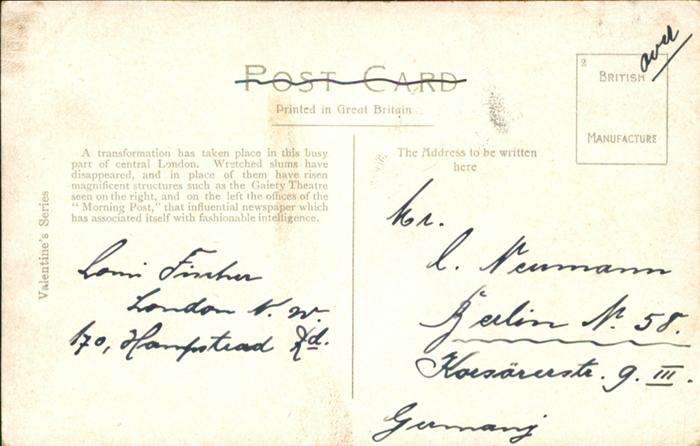 POST CARD
Printed in Great Britain
over
2
BRITISH
MANUFACTURE
Valentine's Series
A transformation has taken place in this busy
part of central London. Wretched slums have
disappeared, and in place of them have risen
magnificent structures such as the Gaiety Theatre
seen on the right, and on the left the offices of the
"Morning Post," that influential newspaper which
has associated itself with fashionable intelligence.
Fischer
London N. W.
170, Hampstead Rd.
The Address to be written
here
Mr.
C. Neumann
Berlin N. 58.
9. III.
Germany